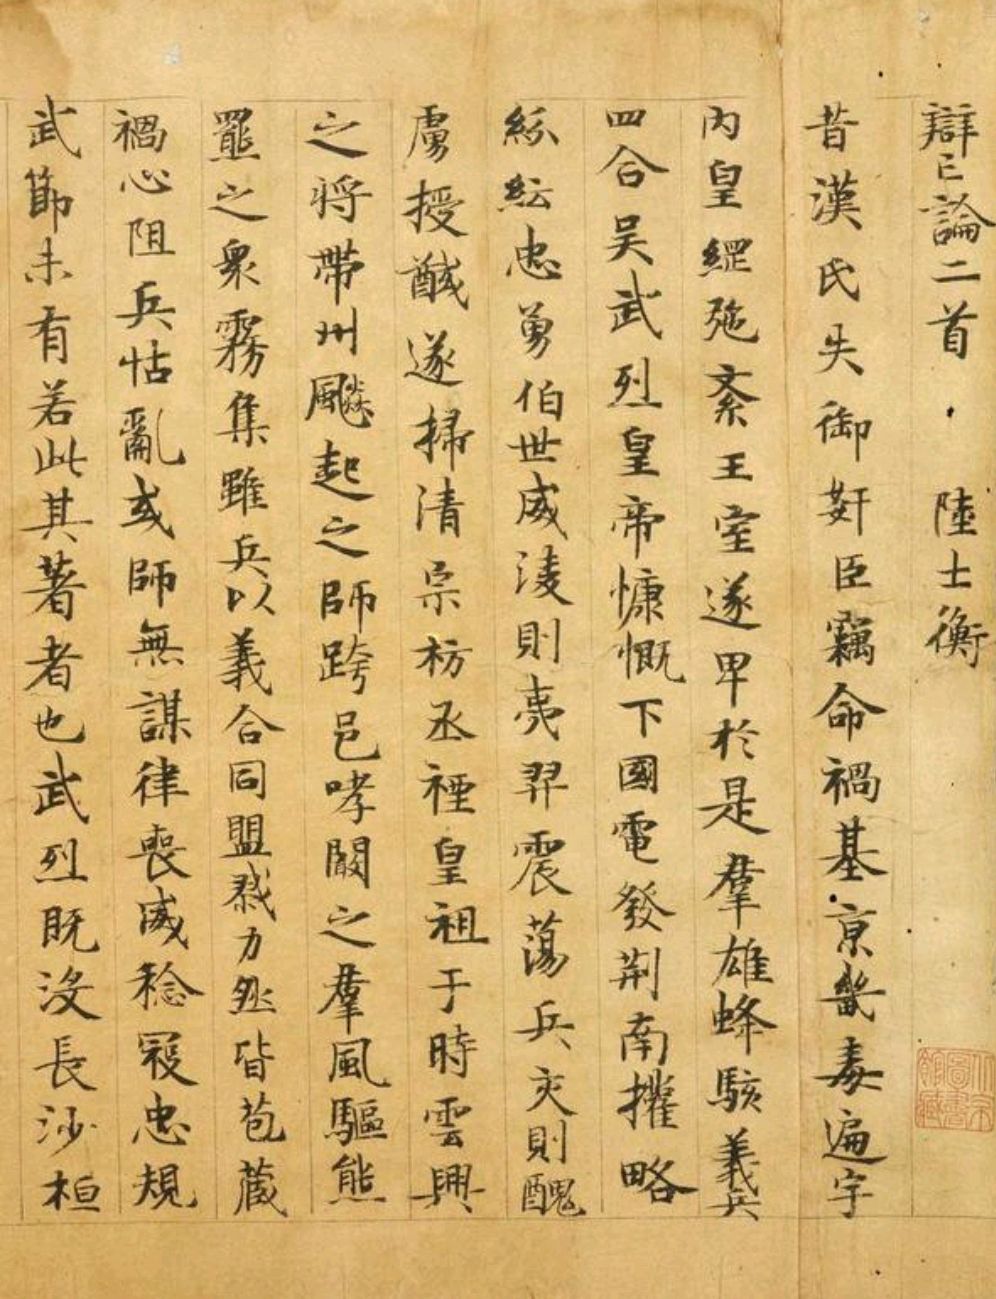 辯亡論二首 陸士衡
昔漢氏失御姧臣竊命禍基京畿毒遍宇
內皇綱弛紊王室遂卑於是羣雄蜂駭義兵
四合吴武烈皇帝慷慨下國電發荆南權略
紛紜忠勇伯世威淩則夷羿震蕩兵交則醜
虜授馘遂掃清宗枋丞禋皇祖于時雲興
之將帶州飈起之師跨邑哮闞之羣風驅熊
羆之衆霧集雖兵以義合同盟勠力然皆苞藏
禍心阻兵怙亂或師無謀律喪威稔寇忠規
武節未有若此其著者也武烈既没長沙桓